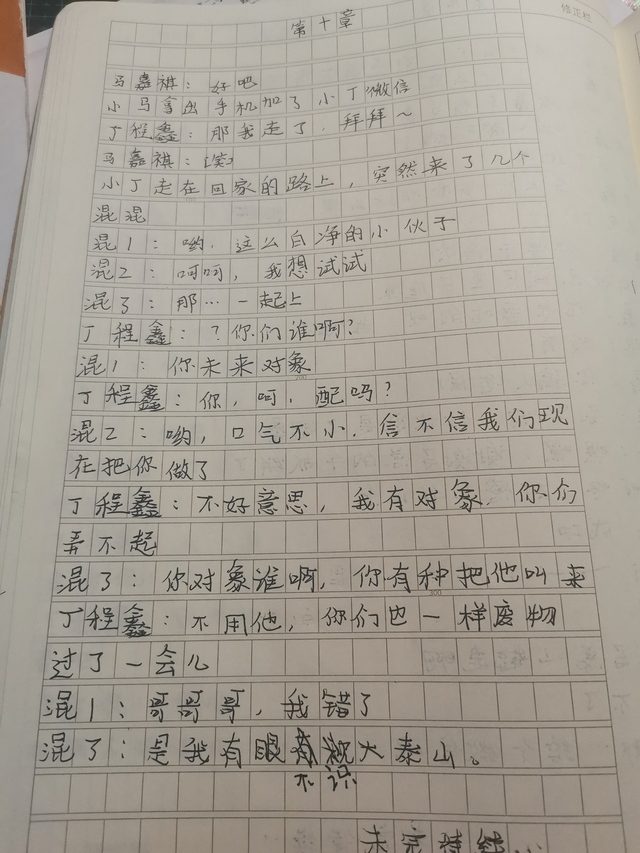 修正栏
第十章
马嘉祺：好吧
小马拿出手机加了小丁微信
丁程鑫：那我走了，拜拜~
马嘉祺：（笑）
小丁走在回家的路上，突然来了几个
混混
混1：哟，这么白净的小伙子
混2：呵呵，我想试试
混3：那…一起上
丁程鑫：？你们谁啊？
混1：你未来对象
丁程鑫：你，呵，配吗？
混2：哟，口气不小，信不信我们现
在把你做了
丁程鑫：不好意思，我有对象，你们
弄不起
混3：你对象谁啊，你有种把他叫来
丁程鑫：不用他，你们也一样废物
过了一会儿
混1：哥哥哥，我错了
混3：是我有眼不识大泰山。
未完待续…